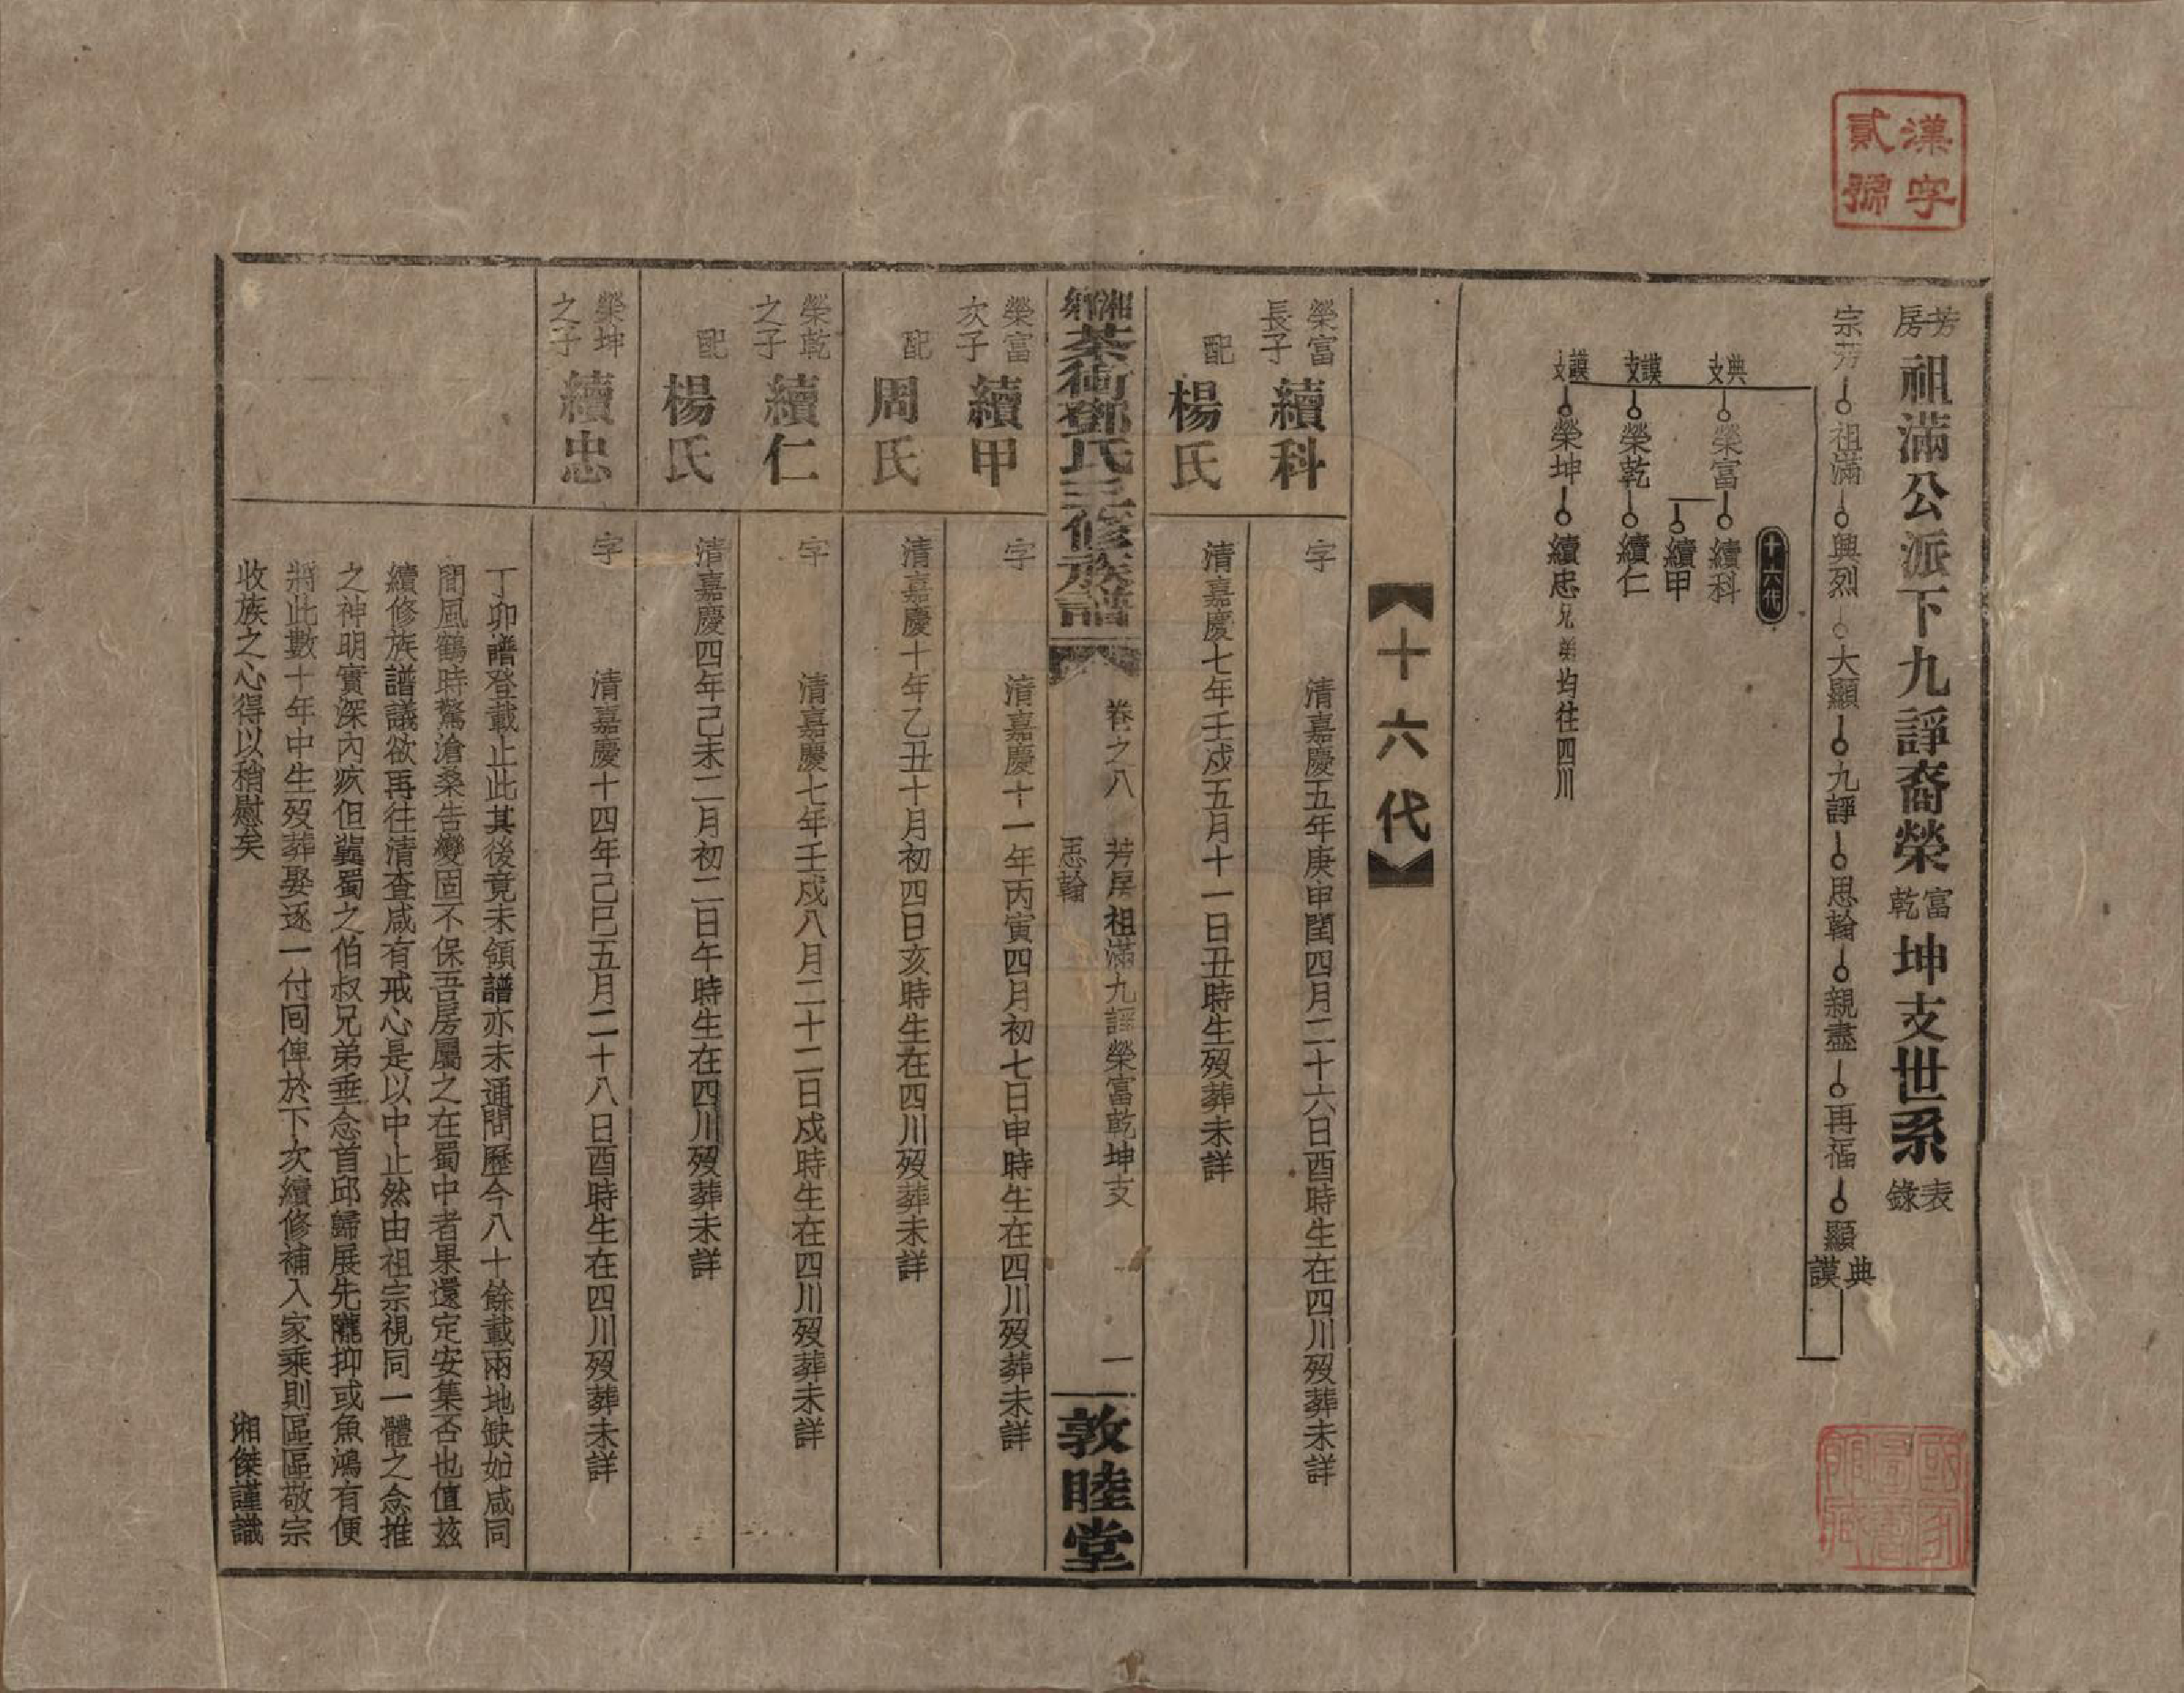 漢字
貳號
芳房祖滿公派下九諍裔榮富乾坤支世系表錄
宗芳祖滿興烈大顯九諍思翰親盡再福顯典謨
十六代
典支榮富續科
續甲
謨支榮乾續仁
謨支榮坤續忠兄弟均往四川
十六代
榮富長子續科
字 清嘉慶五年庚申閏四月二十六日酉時生在四川歿葬未詳
配楊氏
清嘉慶七年壬戌五月十一日丑時生歿葬未詳
湘鄉茶衝鄧氏三修族譜
卷之八
芳房祖滿九諍榮富乾坤支
思翰
一
敦睦堂
榮富次子續甲
字 清嘉慶十一年丙寅四月初七日申時生在四川歿葬未詳
配周氏
清嘉慶十年乙丑十月初四日亥時生在四川歿葬未詳
榮乾之子續仁
字 清嘉慶七年壬戌八月二十二日戌時生在四川歿葬未詳
配楊氏
清嘉慶四年己未二月初二日午時生在四川歿葬未詳
榮坤之子續忠
字 清嘉慶十四年己巳五月二十八日酉時生在四川歿葬未詳
丁卯譜登載止此其後竟未領譜亦未通問歷今八十餘載兩地缺如咸同
間風鶴時驚滄桑告變固不保吾房屬之在蜀中者果還定安集否也值茲
續修族譜議欲再往清查咸有戒心是以中止然由祖宗視同一體之念推
之神明實深內疚但冀蜀之伯叔兄弟垂念首邱歸展先隴抑或魚鴻有便
將此數十年中生歿葬娶逐一付囘俾於下次續修補入家乘則區區敬宗
收族之心得以稍慰矣
湘傑謹識